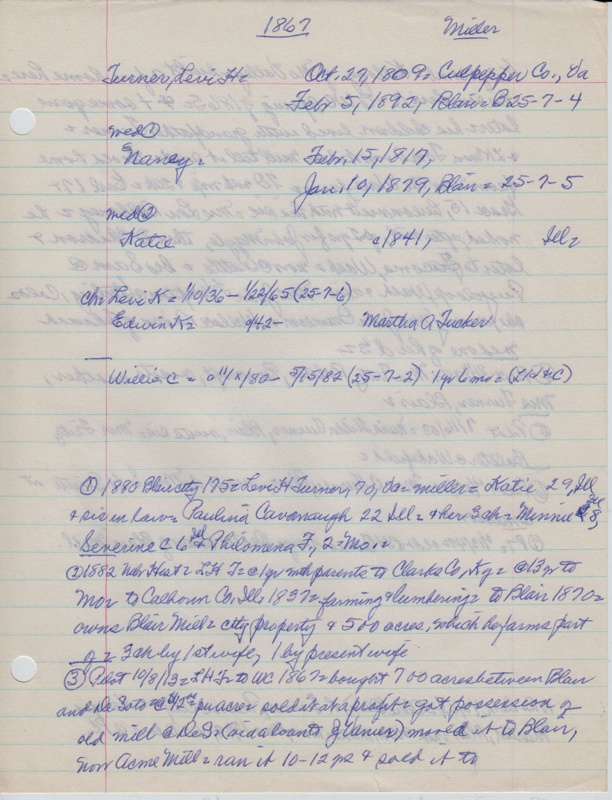 1867 Miller
Turner, Levi H = Oct. 27, 1809 = Culpepper Co., Va
Febr 5, 1892, Blair = B25-7-4
med ①
Nancy = Febr. 15, 1817,
Jan. 10, 1879, Blair = 25-7-5
med ②
Katie c1841, Ill =
ch = Levi K = 1/10/36 – 1/22/65 (25-7-6)
Edwin K = c/42 – Martha A Tucker
Willie C = 11/x/80 – 5/15/82 (25-7-2) 1 yr 6 mo = (L H & C)
① 1880 Blair cty 175 = Levi H Turner, 70, Va = miller = Katie 29, Ill
& sis in law = Paulina Cavanaugh 22 Ill = & her 3 ch = Minnie 8,
Severine C 6 Ill & Philomena F., 2 = Mo. =
② 1882 Neb. Hist = L H T = @ 1 yr with parents to Clarke Co, Ky = @ 13 yr to
Mo = to Calhoun Co, Ill, 1837 = farming & lumbering = to Blair 1870 =
owns Blair Mill = cty property & 500 acres, which he farms part
of = 3 ch by 1st wife, 1 by present wife
③ Pilot 10/8/13 = L H T to WC 1867 = bought 700 acres between Blair
and De Soto = per acre = sold it at a profit = got possession of
old mill @ De S = moved it to Blair,
now Acme Mill = ran it 10-12 yrs & sold it to